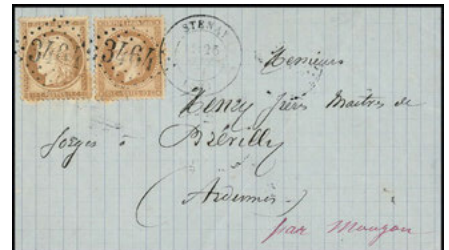 3464 3464
STENAY
Monsieur
Henry frères Maîtres de
forges à Brévilly
(Ardennes)
par Mouzon